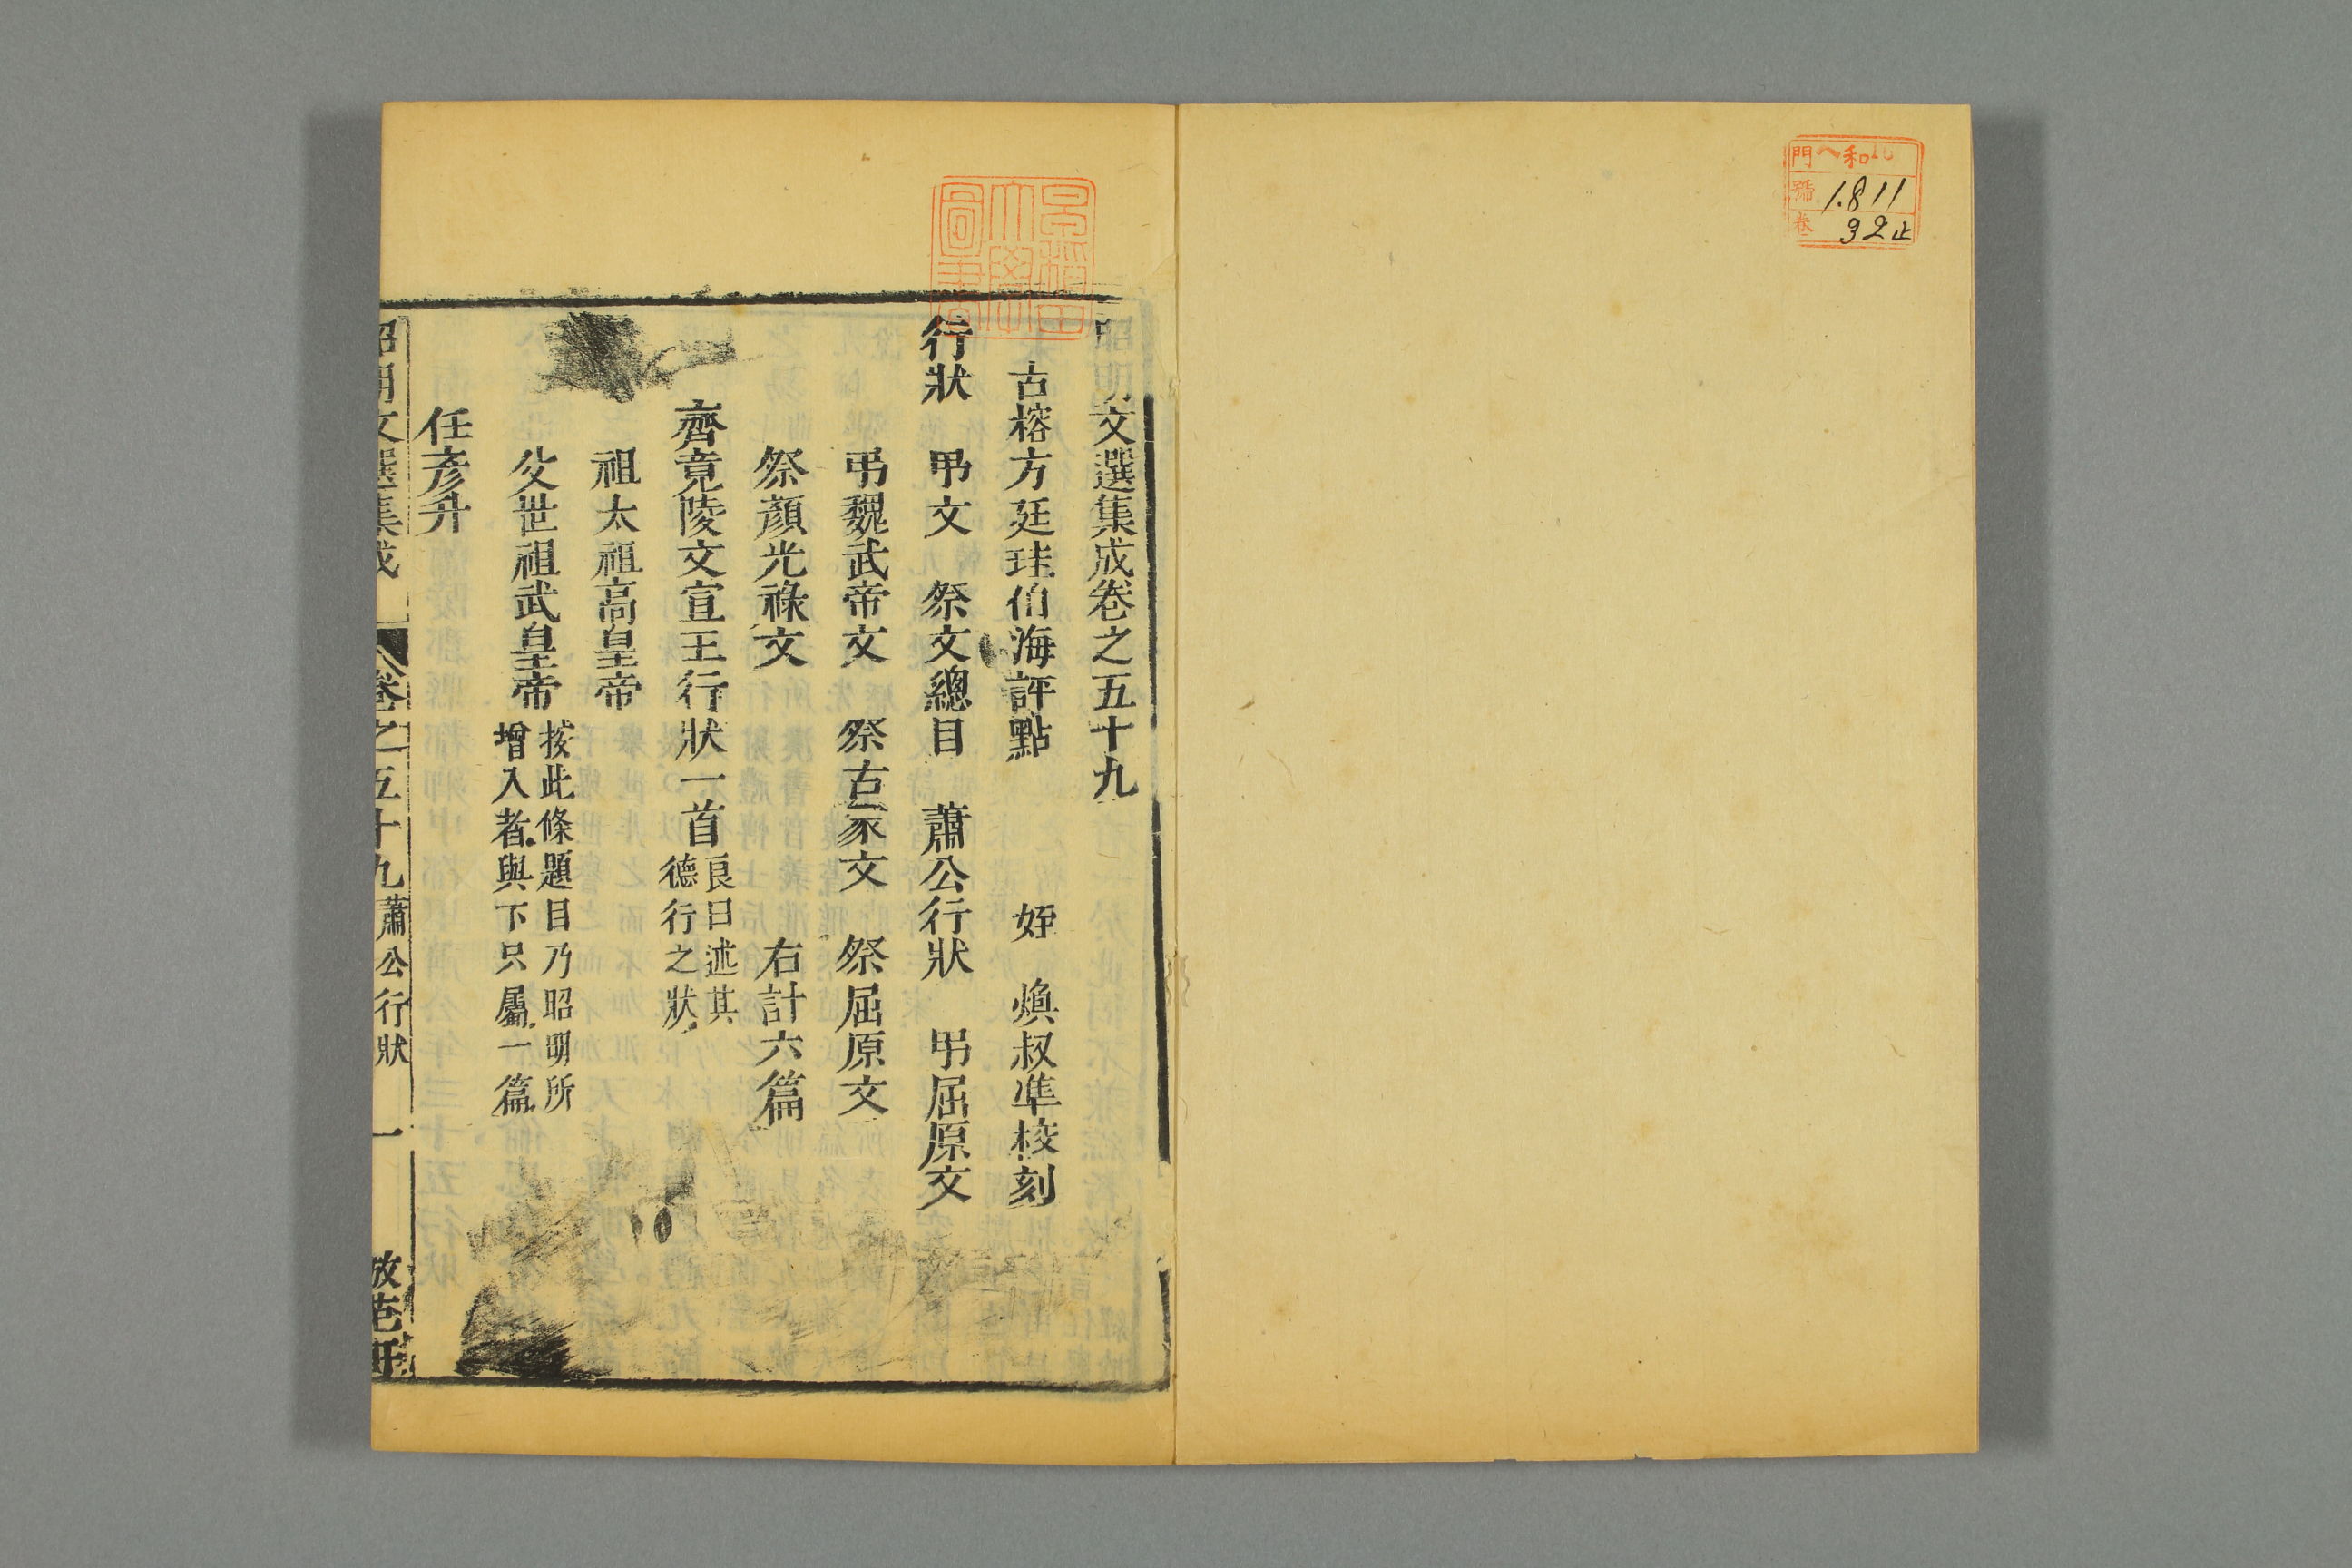 門 ヘ和16
號 1.811
卷 32止
早稲田大學圖書
昭明文選集成卷之五十九
古榕方廷珪伯海評點 姪 煥叔準校刻
行狀 弔文 祭文總目 蕭公行狀 弔屈原文
弔魏武帝文 祭古冢文 祭屈原文
祭顏光祿文 右計六篇
齊竟陵文宣王行狀一首
良曰述其
德行之狀
祖太祖高皇帝
父世祖武皇帝
按此條題目乃昭明所
增入者與下只屬一篇
任彥升
昭明文選集成 卷之五十九 蕭公行狀 一 倣范軒